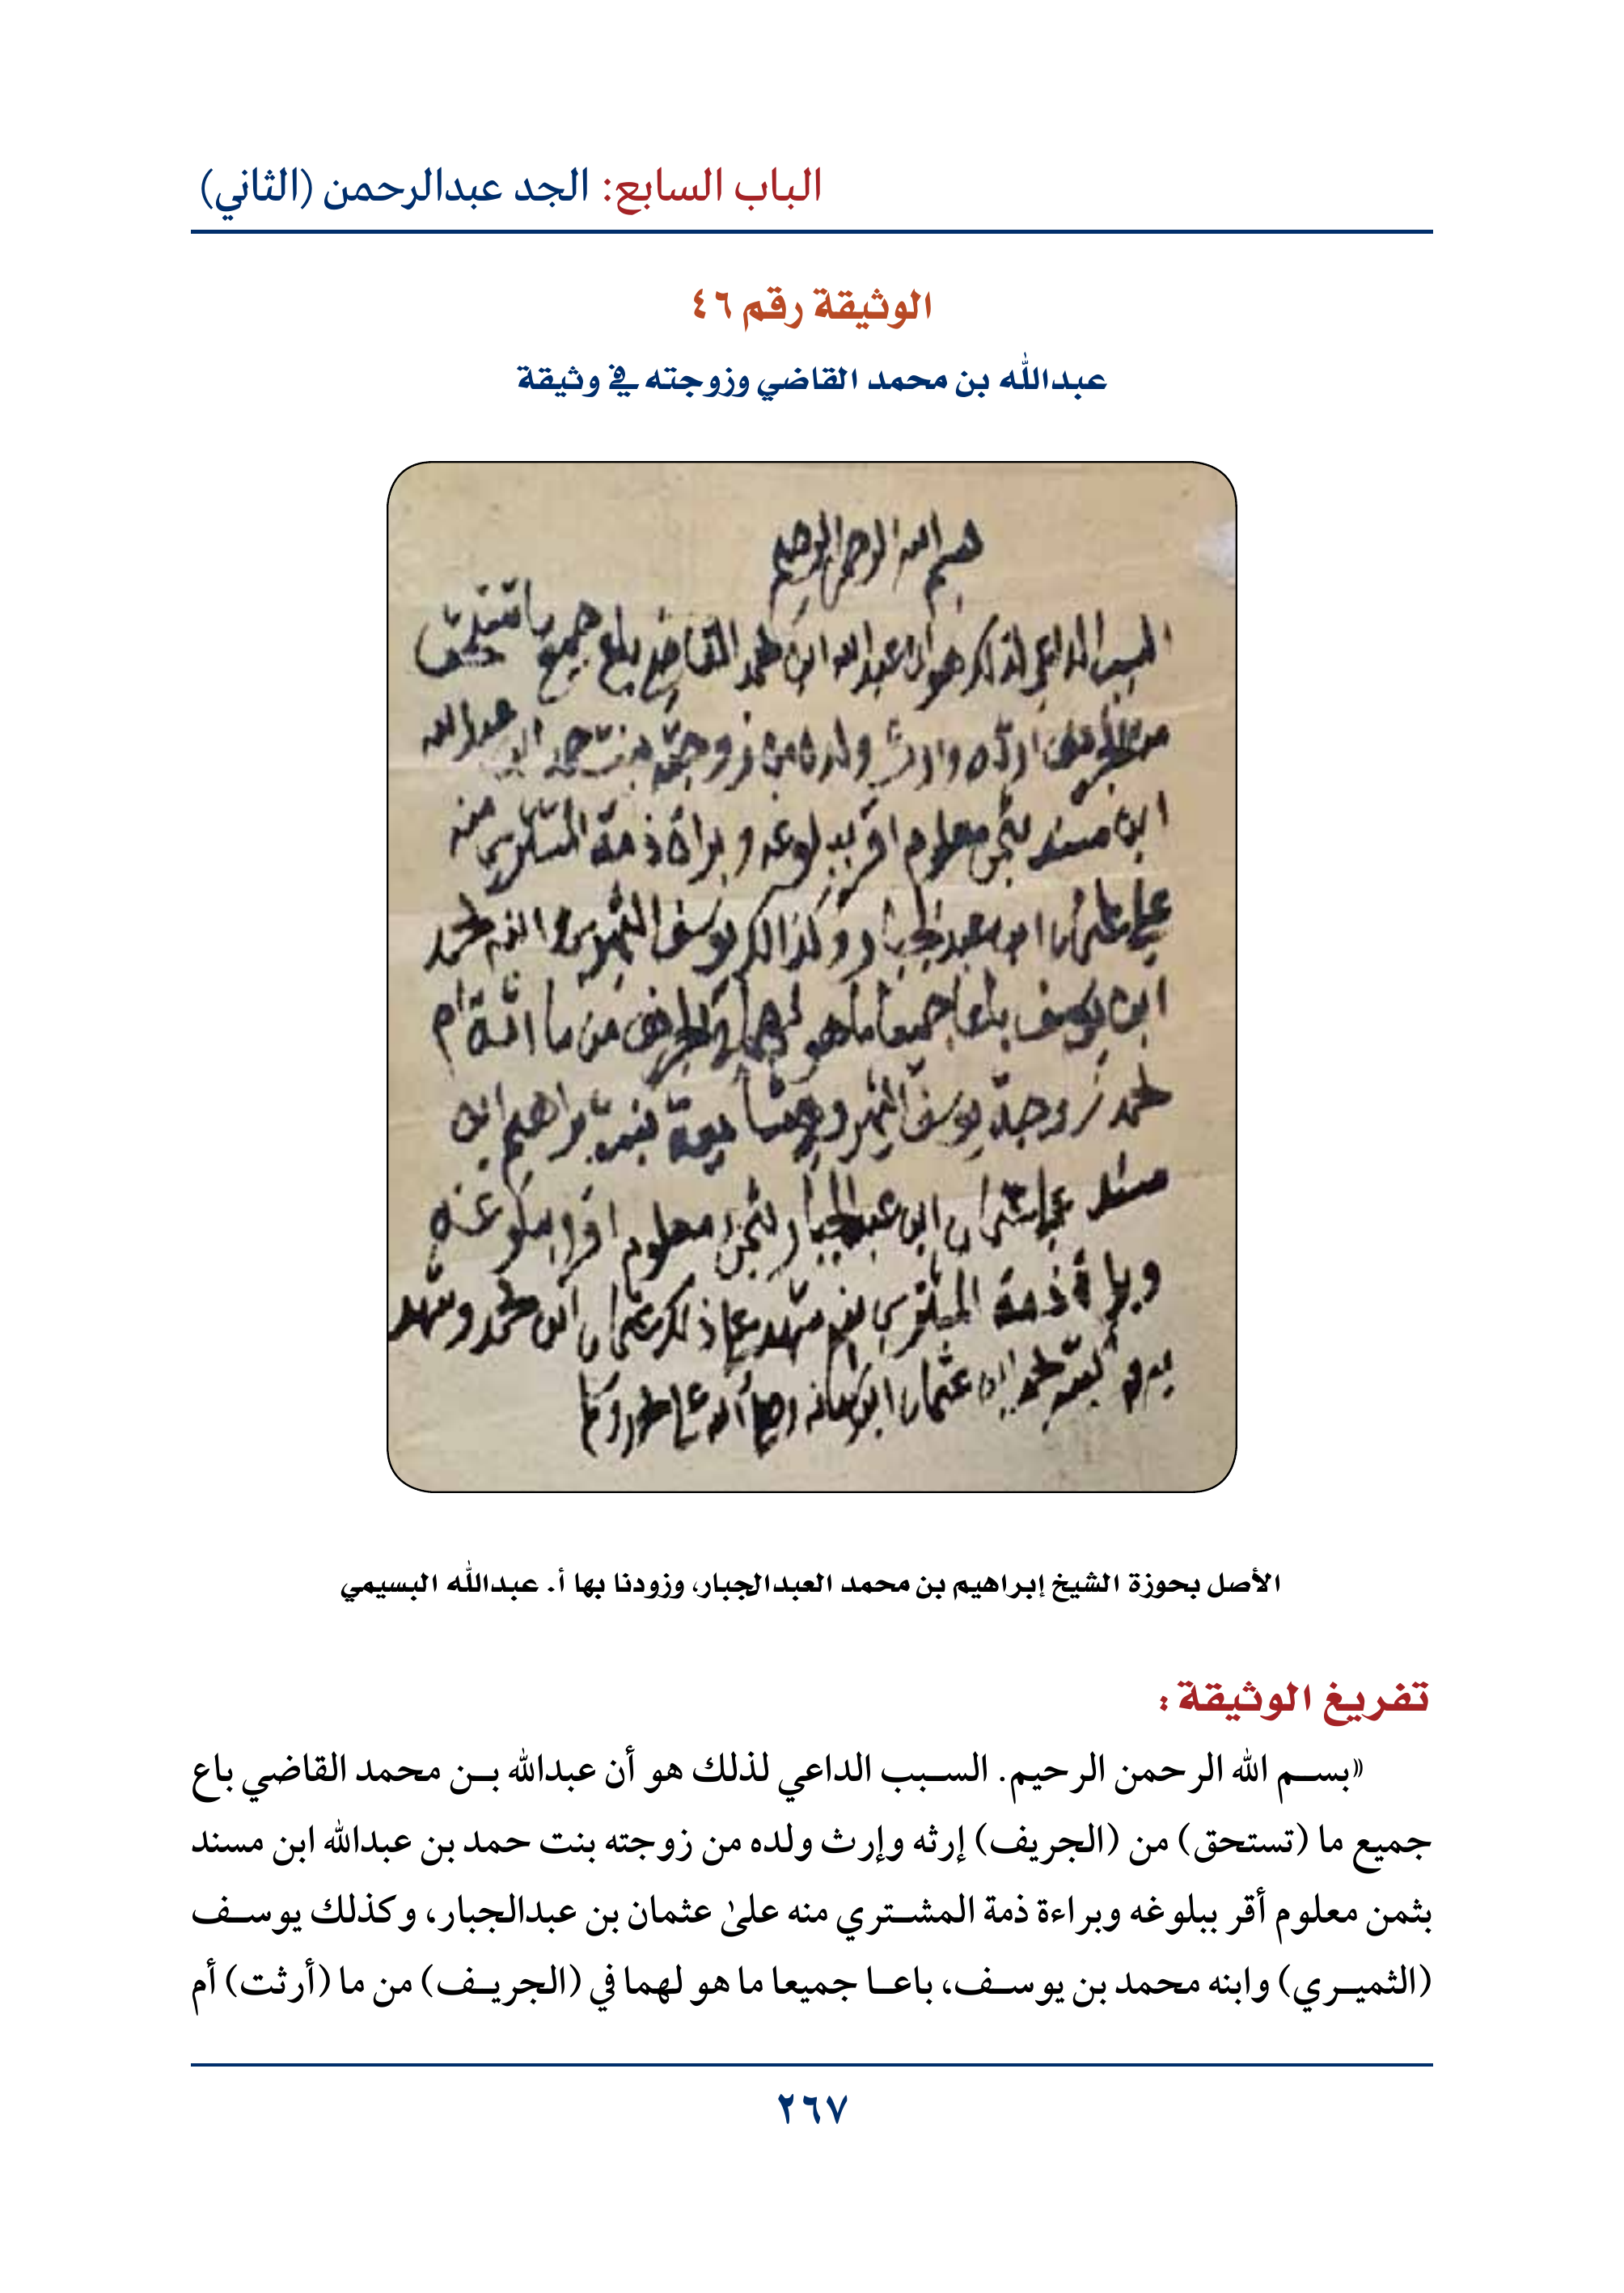 الباب السابع: الجد عبدالرحمن (الثاني)
الوثيقة رقم ٤٦
عبدالله بن محمد القاضي وزوجته في وثيقة
بسم الله الرحمن الرحيم
السبب الداعي لذلك هو ان عبدالله ابن محمد القاضي باع جميع ما تستحق
من الجريف ارثه وارث ولده من زوجته بنت حمد ابن عبدالله
ابن مسند بثمن معلوم اقر ببلوغه وبراة ذمة المشتري منه
علي عثمان ابن عبدالجبار وكذالك يوسف الثميري وابنه محمد
ابن يوسف باعا جميعا ما هو لهما في الجريف من ما ارثة ام
محمد زوجة يوسف الثميري بنت براهيم ابن
مسند على عثمان ابن عبدالجبار بثمن معلوم اقرا ببلوغه
وبراة ذمة المشتري منه شهد على ذلك عثمان ابن محمد وشهد
به وكتبه محمد ابن عثمان ابن وصلى الله على محمد وسلم
الأصل بحوزة الشيخ إبراهيم بن محمد العبدالجبار، وزودنا بها أ. عبدالله البسيمي
تفريغ الوثيقة:
«بسم الله الرحمن الرحيم. السبب الداعي لذلك هو أن عبدالله بن محمد القاضي باع
جميع ما (تستحق) من (الجريف) إرثه وإرث ولده من زوجته بنت حمد بن عبدالله ابن مسند
بثمن معلوم أقر ببلوغه وبراءة ذمة المشتري منه علىٰ عثمان بن عبدالجبار، وكذلك يوسف
(الثميري) وابنه محمد بن يوسف، باعا جميعا ما هو لهما في (الجريف) من ما (أرثت) أم
٢٦٧